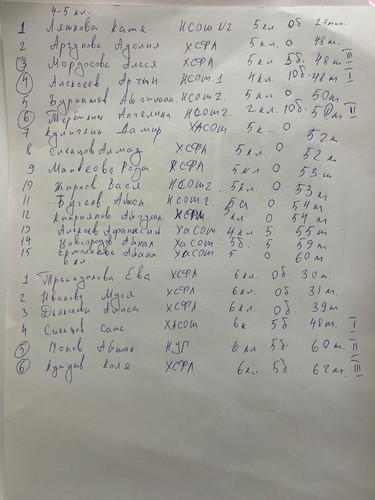 4-5 кл.
1 Ляшкова Катя НСОШ №2 5 кл. 0б 27мин.
2 Аргунова Аделия ХСФЛ 5 кл. 0 48 м.
3 Мордосова Алеся ХСФЛ 5 кл. 5б. 48 м III
4 Алексеев Арчын НСОШ.1 4кл. 10б 48 м I
5 НСОШ2. 5 кл. 0 50 м
6 Ангелина НСОШ2. 2 кл. 10б. 50 м II
7 Куличкин Дамир ХАСОШ 5 к. 0 52 м
8 Слепцов Алмаз ХСФЛ 5 кл. 0 52 м
9 Роза ХСФЛ 5 кл 0 53 м
10 Жирков Вася НСОШ2. 5кл. 0 53 м
11 НСОШ2. 5 кл 0 54 м
12 Киприянов ХСФЛ 5 кл 0 54 м
13 Алексеев Афанасий ХАСОШ 4кл 5 55 м
14 Новгородов Айхал ХАСОШ 5б. 5 59 м
15 Ермолаева Айана ХАСОШ. 5 0 60 м
6 кл.
1 Ева ХСФЛ 6 кл. 0б 30 м.
2 Иванова Муся ХСФЛ 6 кл. 0б 31 м.
3 Дьяконова Алиса ХСФЛ 6 кл 0б 39 м
4 Слепцов Сана ХАСОШ 6к. 5б 48м. I
5 Попов Айтал НУГ 6 кл 5б. 60 м. II
6 Коля ХСФЛ 6кл 5б. 62 м. III